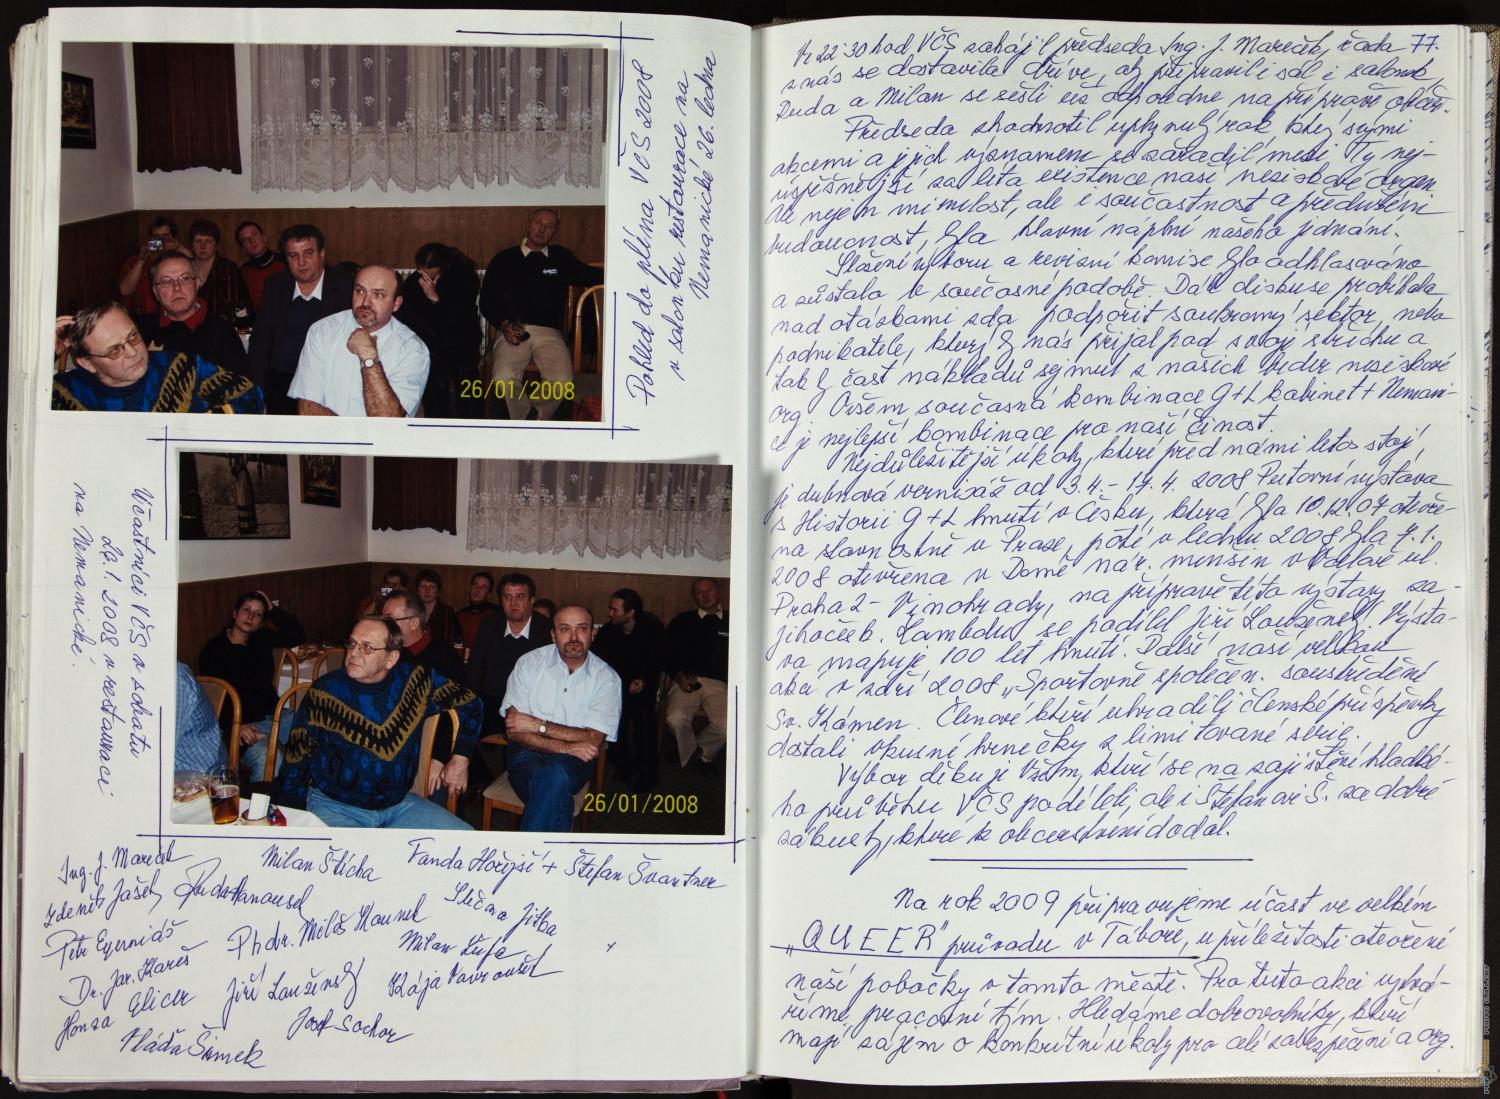 Pohled do pléna VČS 2008
v salonku restaurace na
Nemanické 26. ledna
26/01/2008
Účastníci VČS v
28.1.2008 v restauraci
na Nemanické.
26/01/2008
Ing. J. Mareček Milan Štícha Fanda Hořejší + Štefan Švantner
Zdeněk Jašek Ruda Hanousek Slečna Jitka
Petr PhDr. Miloš Kounek Milan
Dr. Jar. Kareš Jiří Loužensk Kája Vavroušek
Honza Elicer Josef Sochor
Vláďa Šimek
Ve 22:30 hod VČS zahájil předseda Ing. J. Mareček, řada 77.
z nás se dostavila dříve, aby připravili sál i salonek,
Ruda a Milan se sešli již odpoledne na přípravě občer-
Předseda zhodnotil uplynulý rok, který svými
akcemi a jejich významem se zařadil mezi Ty nej-
úspěšnější za léta existence naší neziskové organ.
Ale nejen minulost, ale i součastnost a především
budoucnost, byla hlavní náplní našeho jednání.
Složení výboru a revizní komise byla odhlasována
a zůstala v současné podobě. Dál diskuse probíhala
nad otázkami zda podpořit soukromý sektor, nebo
podnikatele, který by nás přijal pod svoji střechu a
tak by část nákladů sejmul z našich beder neziskové
org. Ovšem současná kombinace G+L kabinet + Nemani-
ce je nejlepší kombinace pro naší činost.
Nejdůležitější úkoly, které před námi letos stojí,
je dubnová vernisáž od 3.4. – 17.4. 2008 Putovní výstava
s Historií G+L hnutí v Česku, která byla 10.12.07 otevře-
na slavnostně v Praze, poté v lednu 2008 byla 7.1.
2008 otevřena v Domě nár. menšin v ul.
Praha 2 – Vinohrady, na přípravě této výstavy za
Jihočesk. Lambdu se podílel Jiří Loužensk. Výsta-
va mapuje 100 let hnutí. Další naší velkou
akcí v září 2008 „Sportovně společen. soustředění
Sv. Kámen. Členové kteří uhradili členské příspěvky
dostali vkusné hrnečky z limitované série.
Výbor děkuje Všem, kteří se na zajištění hladké-
ho průběhu VČS podíleli, ale i Štefanovi Š. za dobré
zákusky, které k občerstvení dodal.
Na rok 2009 připravujeme účast ve velkém
„QUEER" průvodu v Táboře, u příležitosti otevření
naší pobočky v tomto městě. Pro tuto akci vytvá-
říme pracovní tým. Hledáme dobrovolníky, kteří
mají zájem o konkrétní úkoly pro celé zabezpečení a org.